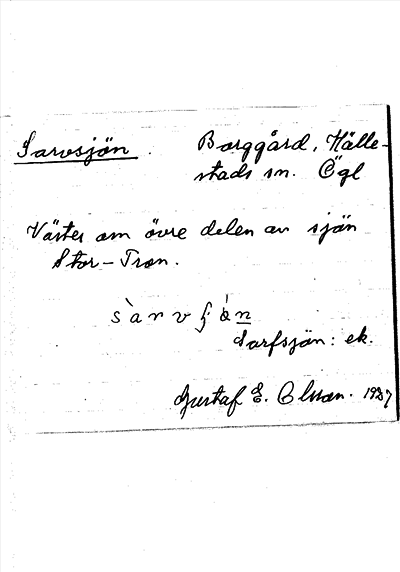 Sarvsjön. Borggård, Hälle-
stads sn. Ögl
Väster om övre delen av sjön
Stor-Tron.
sàrvʃön
Sarfsjön: ek.
Gustaf E. Olsson. 1937